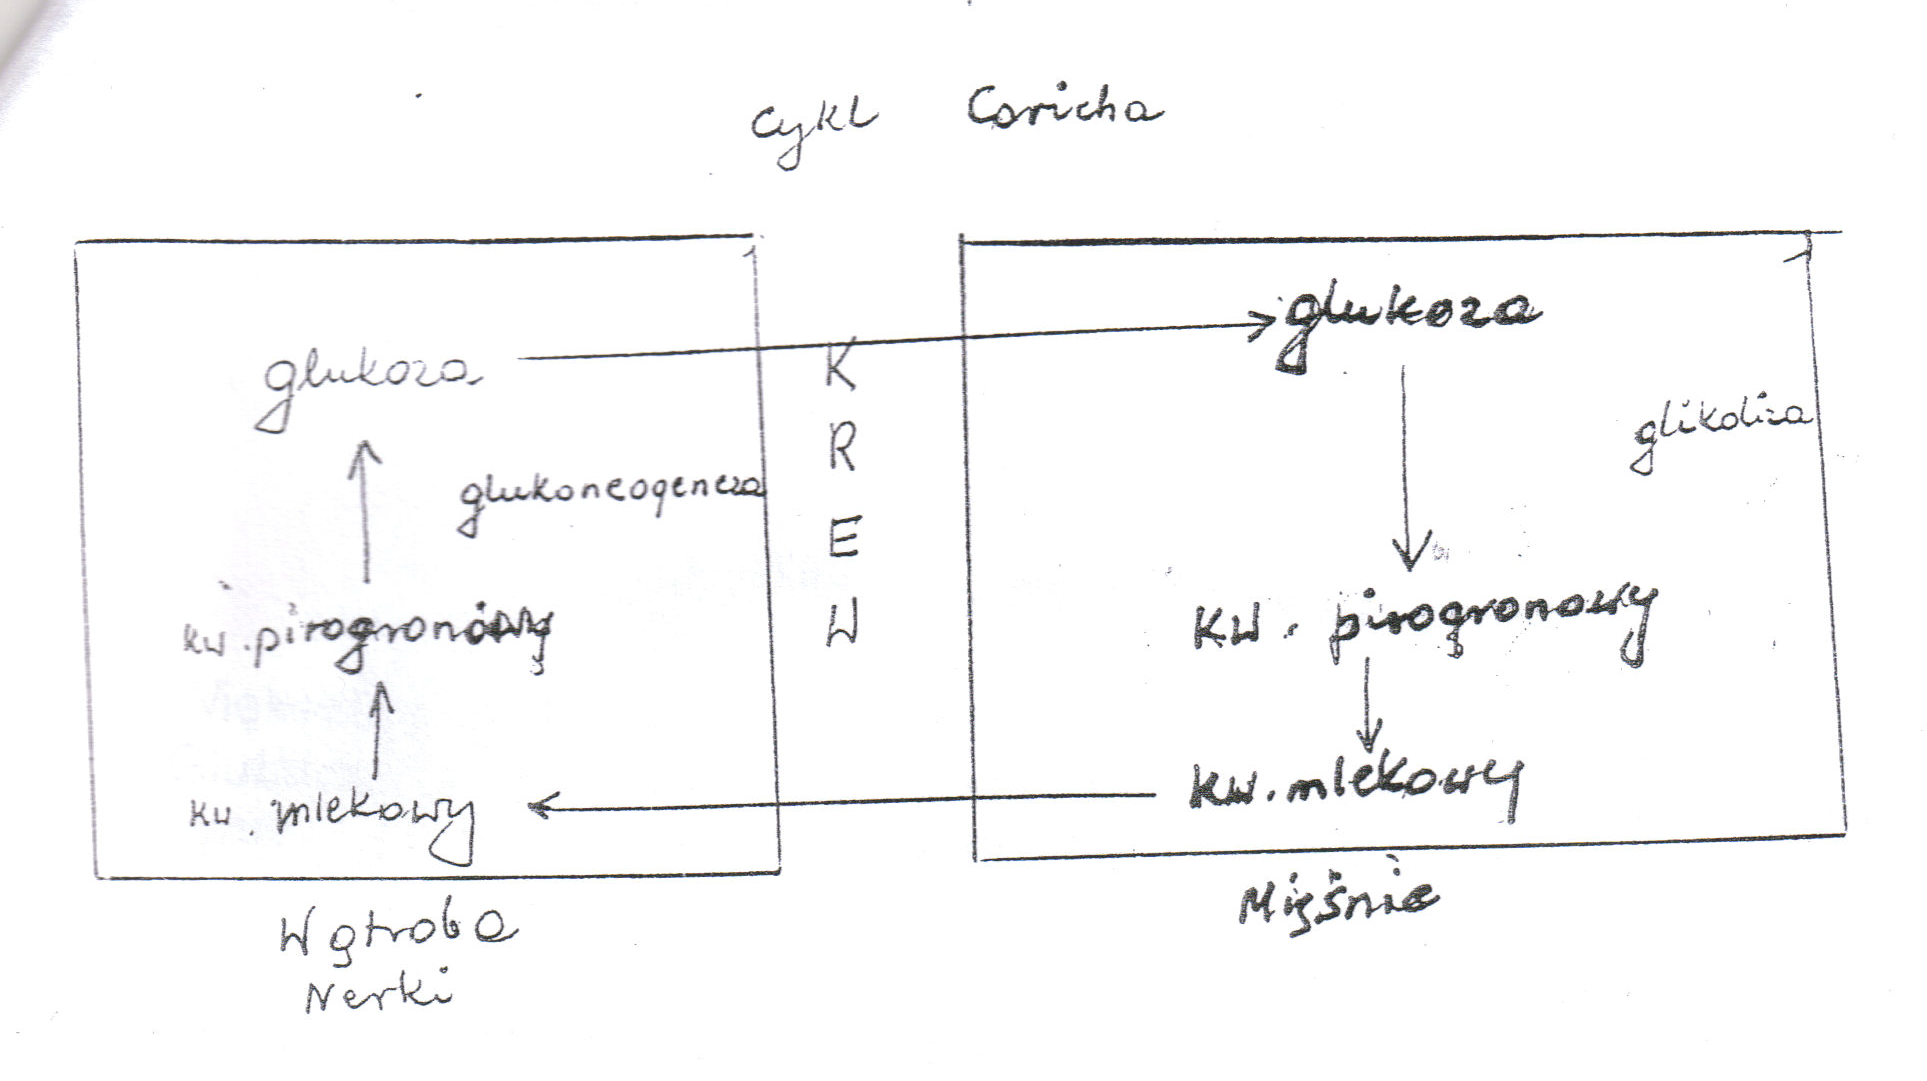 Cykl Coricha
glukoza
glukoneogeneza
kw. pirogronowy
kw. mlekowy
Wątroba
Nerki
K
R
E
W
glukoza
glikoliza
kw. pirogronowy
kw. mlekowy
Mięśnie